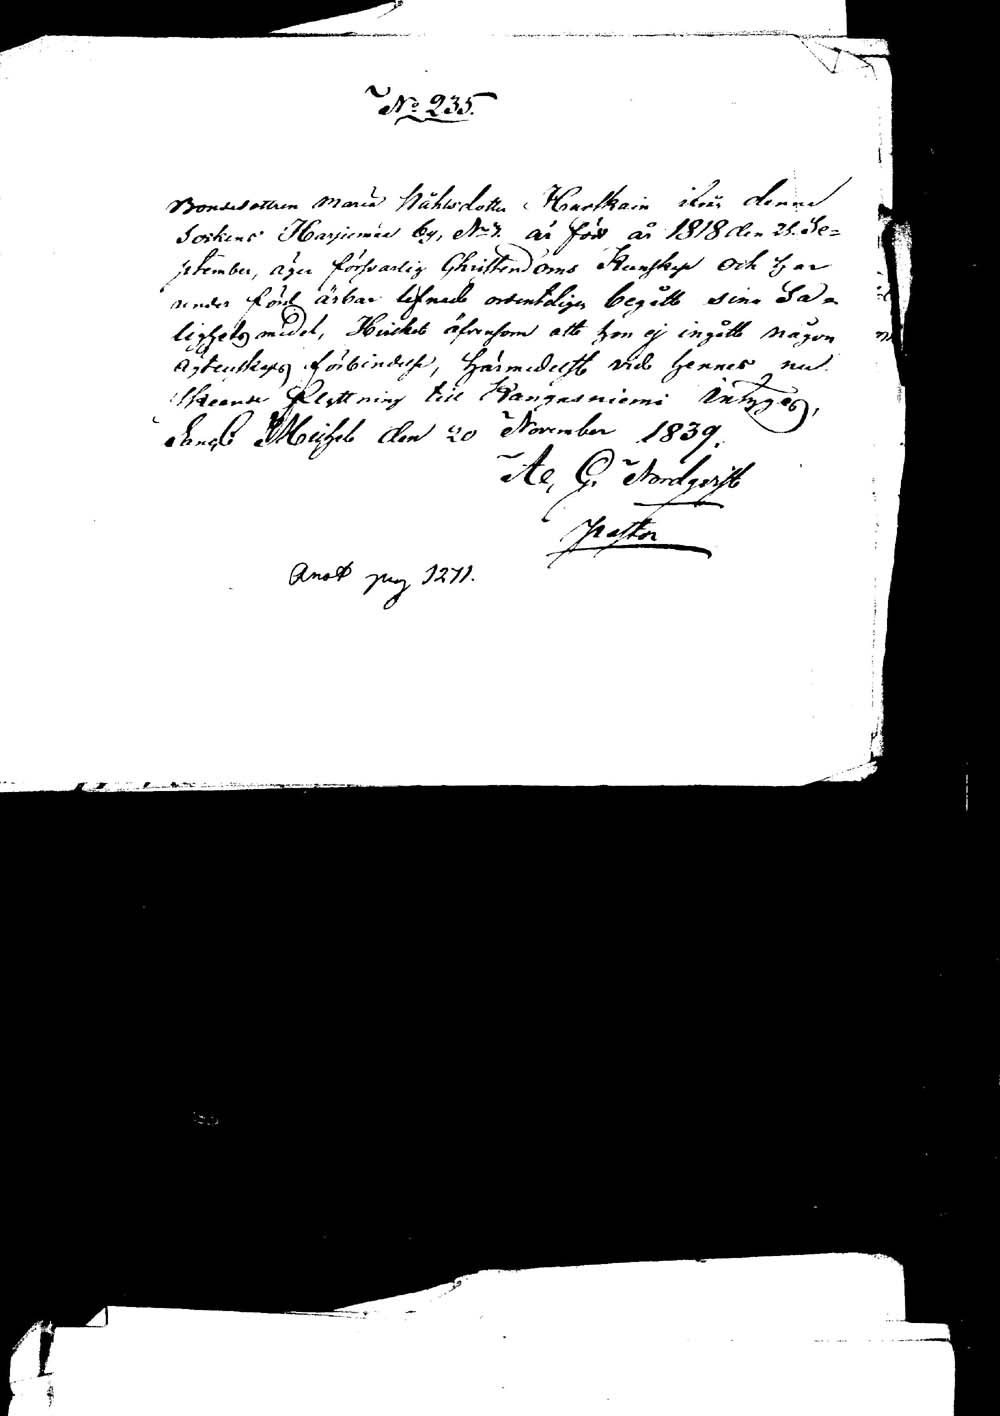 No 235.
Bondedottren Maria Påhlsdotter Kurkkain ifrån denna
Sockens Harjumaa by, No 7. är född år 1818 den 25. Se=
ptember, äger försvarlig Christendoms Kunskap och har
under förd ärbar lefnad ordenteligen begått sina Sa-
lighets medel, Hvilket äfvensom att hon ej ingått någon
ägtenskaps förbindelse, härmedelst vid hennes nu
skeende flyttning till Kangasniemi intygas,
Sanct Michel den 20 November 1839.
A. G. Nordqvist
Pastor
Anot pag 1271.